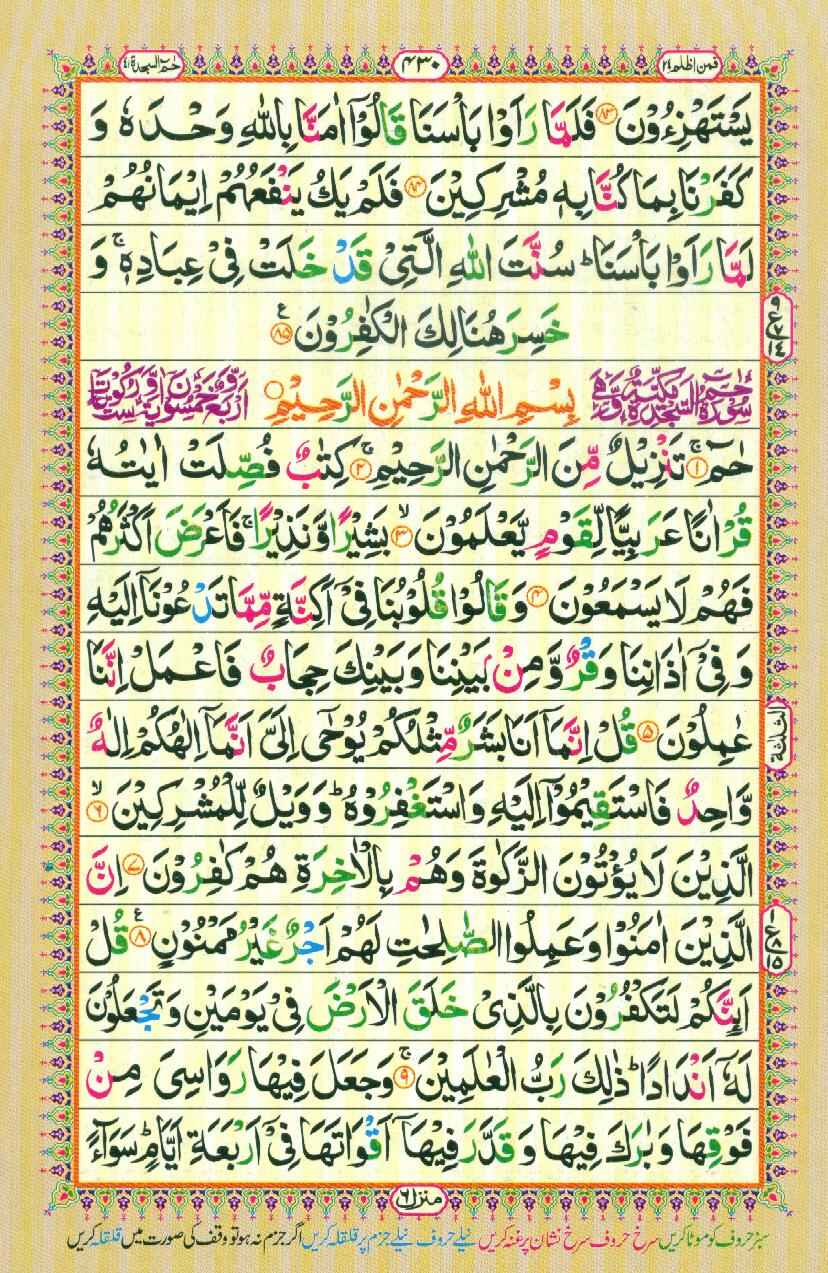 فمن اظلم ٢٤ ٤٣٠ حٰمٓ السجدة ٤١
يَسْتَهْزِءُوْنَ ﴿۸۳﴾ فَلَمَّا رَاَوْا بَاْسَنَا قَالُوْۤا اٰمَنَّا بِاللّٰهِ وَحْدَهٗ وَ
كَفَرْنَا بِمَا كُنَّا بِهٖ مُشْرِكِيْنَ ﴿۸۴﴾ فَلَمْ يَكُ يَنْفَعُهُمْ اِيْمَانُهُمْ
لَمَّا رَاَوْا بَاْسَنَا ؕ سُنَّتَ اللّٰهِ الَّتِيْ قَدْ خَلَتْ فِيْ عِبَادِهٖ ۚ وَ
خَسِرَ هُنَالِكَ الْكٰفِرُوْنَ ﴿۸۵﴾ ع
سُوْرَةُ حٰمٓ السَّجْدَةِ مَكِّيَّةٌ وَّهِيَ بِسْمِ اللّٰهِ الرَّحْمٰنِ الرَّحِيْمِ
حٰمٓ ﴿۱﴾ ۚ تَنْزِيْلٌ مِّنَ الرَّحْمٰنِ الرَّحِيْمِ ﴿۲﴾ ۚ كِتٰبٌ فُصِّلَتْ اٰيٰتُهٗ
قُرْاٰنًا عَرَبِيًّا لِّقَوْمٍ يَّعْلَمُوْنَ ﴿۳﴾ ۙ بَشِيْرًا وَّنَذِيْرًا ۚ فَاَعْرَضَ اَكْثَرُهُمْ
فَهُمْ لَا يَسْمَعُوْنَ ﴿۴﴾ وَقَالُوْا قُلُوْبُنَا فِيْۤ اَكِنَّةٍ مِّمَّا تَدْعُوْنَاۤ اِلَيْهِ
وَفِيْۤ اٰذَانِنَا وَقْرٌ وَّمِنْۢ بَيْنِنَا وَبَيْنِكَ حِجَابٌ فَاعْمَلْ اِنَّنَا
عٰمِلُوْنَ ﴿۵﴾ قُلْ اِنَّمَاۤ اَنَا بَشَرٌ مِّثْلُكُمْ يُوْحٰۤى اِلَيَّ اَنَّمَاۤ اِلٰهُكُمْ اِلٰهٌ
وَّاحِدٌ فَاسْتَقِيْمُوْۤا اِلَيْهِ وَاسْتَغْفِرُوْهُ ؕ وَوَيْلٌ لِّلْمُشْرِكِيْنَ ﴿۶﴾ ۙ
الَّذِيْنَ لَا يُؤْتُوْنَ الزَّكٰوةَ وَهُمْ بِالْاٰخِرَةِ هُمْ كٰفِرُوْنَ ﴿۷﴾ اِنَّ
الَّذِيْنَ اٰمَنُوْا وَعَمِلُوا الصّٰلِحٰتِ لَهُمْ اَجْرٌ غَيْرُ مَمْنُوْنٍ ﴿۸﴾ ع قُلْ
اَىِٕنَّكُمْ لَتَكْفُرُوْنَ بِالَّذِيْ خَلَقَ الْاَرْضَ فِيْ يَوْمَيْنِ وَتَجْعَلُوْنَ
لَهٗۤ اَنْدَادًا ؕ ذٰلِكَ رَبُّ الْعٰلَمِيْنَ ﴿۹﴾ ۚ وَجَعَلَ فِيْهَا رَوَاسِيَ مِنْ
فَوْقِهَا وَبٰرَكَ فِيْهَا وَقَدَّرَ فِيْهَاۤ اَقْوَاتَهَا فِيْۤ اَرْبَعَةِ اَيَّامٍ ؕ سَوَآءً
منزل ٦
سبز حروف کو موٹا کریں سرخ حروف سرخ نشان پر غنہ کریں نیلے حروف نیلے جزم پر قلقلہ کریں اگر جزم نہ ہو تو وقف کی صورت میں قلقلہ کریں